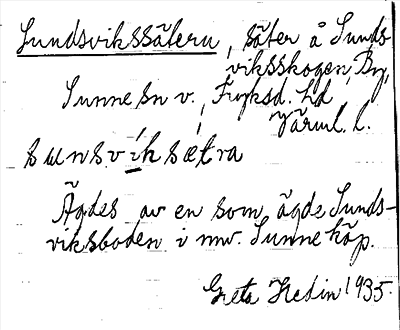 Sundsvikssätern, säter å Sunds-
viksskogen, By,
Sunne sn v., Fryksd. hd
Värml. l.
sunsvíksætra
Ägdes av en som ägde Sunds-
viksboden i nuv. Sunne köp.
Greta Hedin 1935.